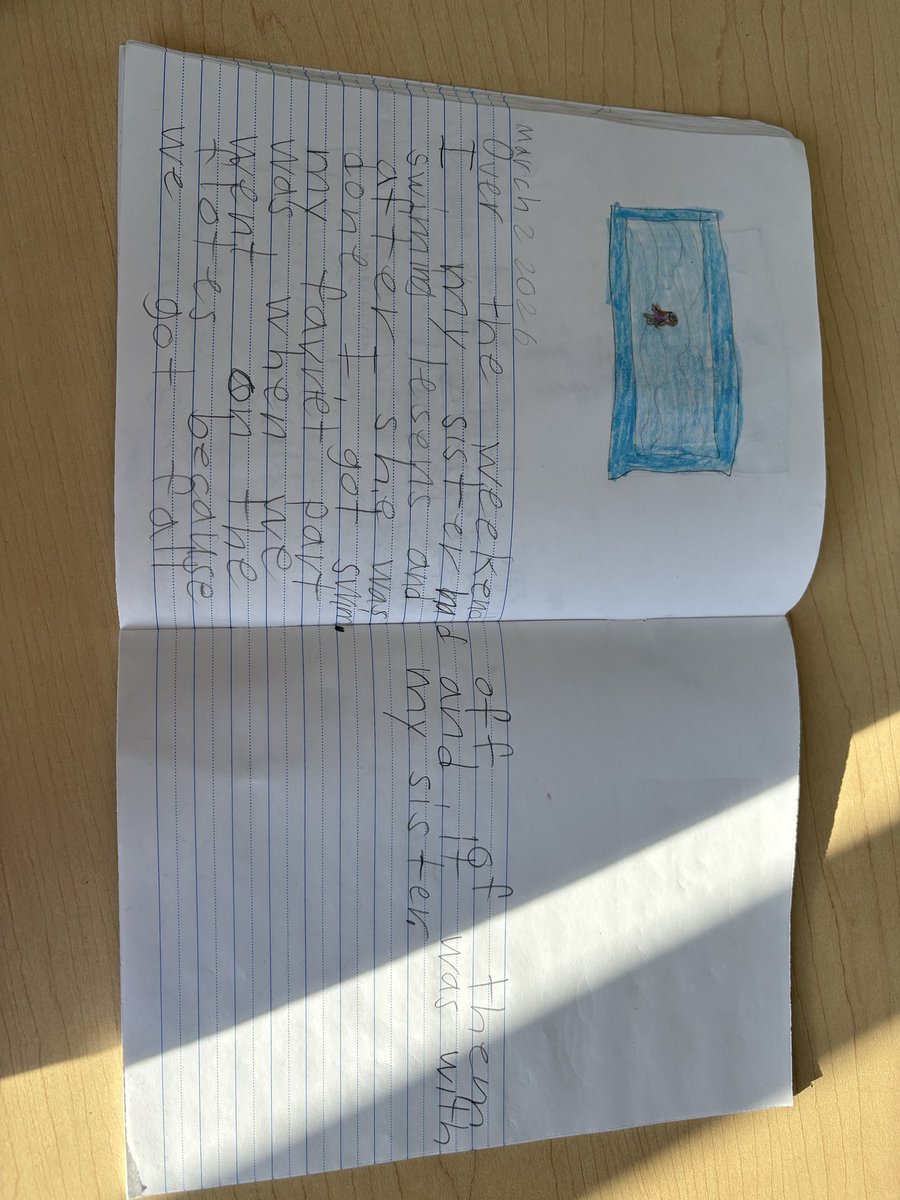 March 2 2026
Over the weekend
I my sister had
swimming lesens and
after I she was
done I got swim
my favriet part
was when we
went on the
flotes because
we got fall
off of them
and it was with
my sister.